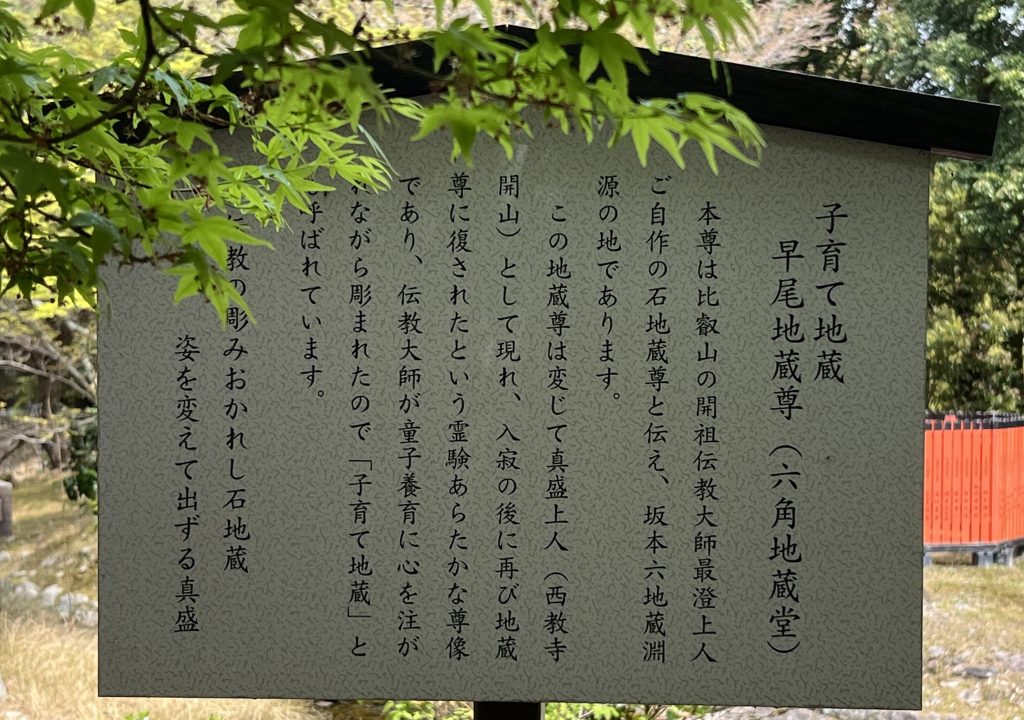 子育て地蔵
早尾地蔵尊（六角地蔵堂）
本尊は比叡山の開祖伝教大師最澄上人
ご自作の石地蔵尊と伝え、坂本六地蔵淵
源の地であります。
この地蔵尊は変じて真盛上人（西教寺
開山）として現れ、入寂の後に再び地蔵
尊に復されたという霊験あらたかな尊像
であり、伝教大師が童子養育に心を注が
れながら彫まれたので「子育て地蔵」と
呼ばれています。
教の彫みおかれし石地蔵
姿を変えて出ずる真盛